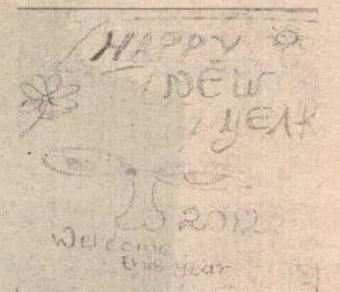 HAPPY
NEW
YEAR
2012
Welcome
this year